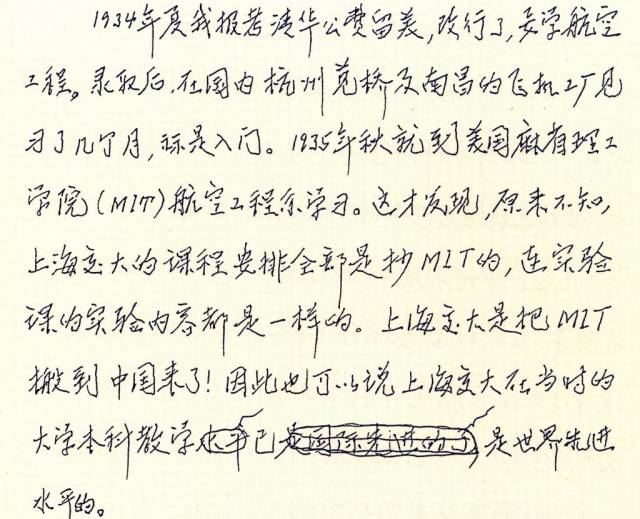 1934年夏我报考清华公费留美,改行了,要学航空
工程。录取后,在国内杭州笕桥及南昌的飞机工厂见
习了几个月,算是入门。1935年秋就到美国麻省理工
学院(MIT)航空工程系学习。这才发现,原来不知,
上海交大的课程安排全部是抄MIT的,连实验
课的实验内容都是一样的。上海交大是把MIT
搬到中国来了!因此也可以说上海交大在当时的
大学本科教学水平已是国际先进的了是世界先进
水平的。